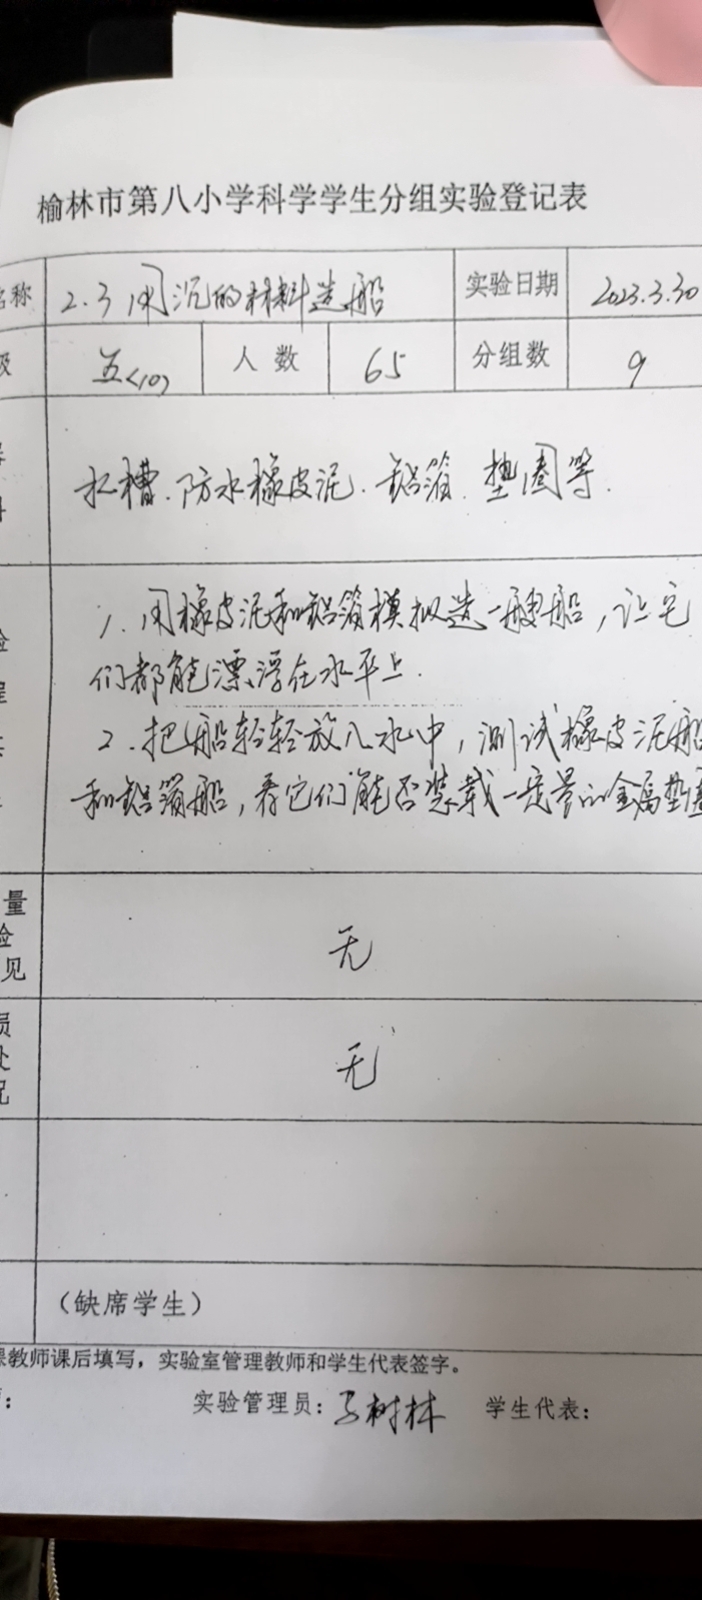 榆林市第八小学科学学生分组实验登记表
名称 2.3用沉的材料造船 实验日期 2023.3.30
级 五<10> 人数 65 分组数 9
水槽.防水橡皮泥.铝箔.垫圈等.
1.用橡皮泥和铝箔模拟造一艘船,让它
们都能漂浮在水平上.
2.把船轻轻放入水中,测试橡皮泥船
和铝箔船,看它们能否装载一定量的金属垫圈
量
验
见
无
员
处
况
无
(缺席学生)
课教师课后填写,实验室管理教师和学生代表签字。
实验管理员: 树林 学生代表: